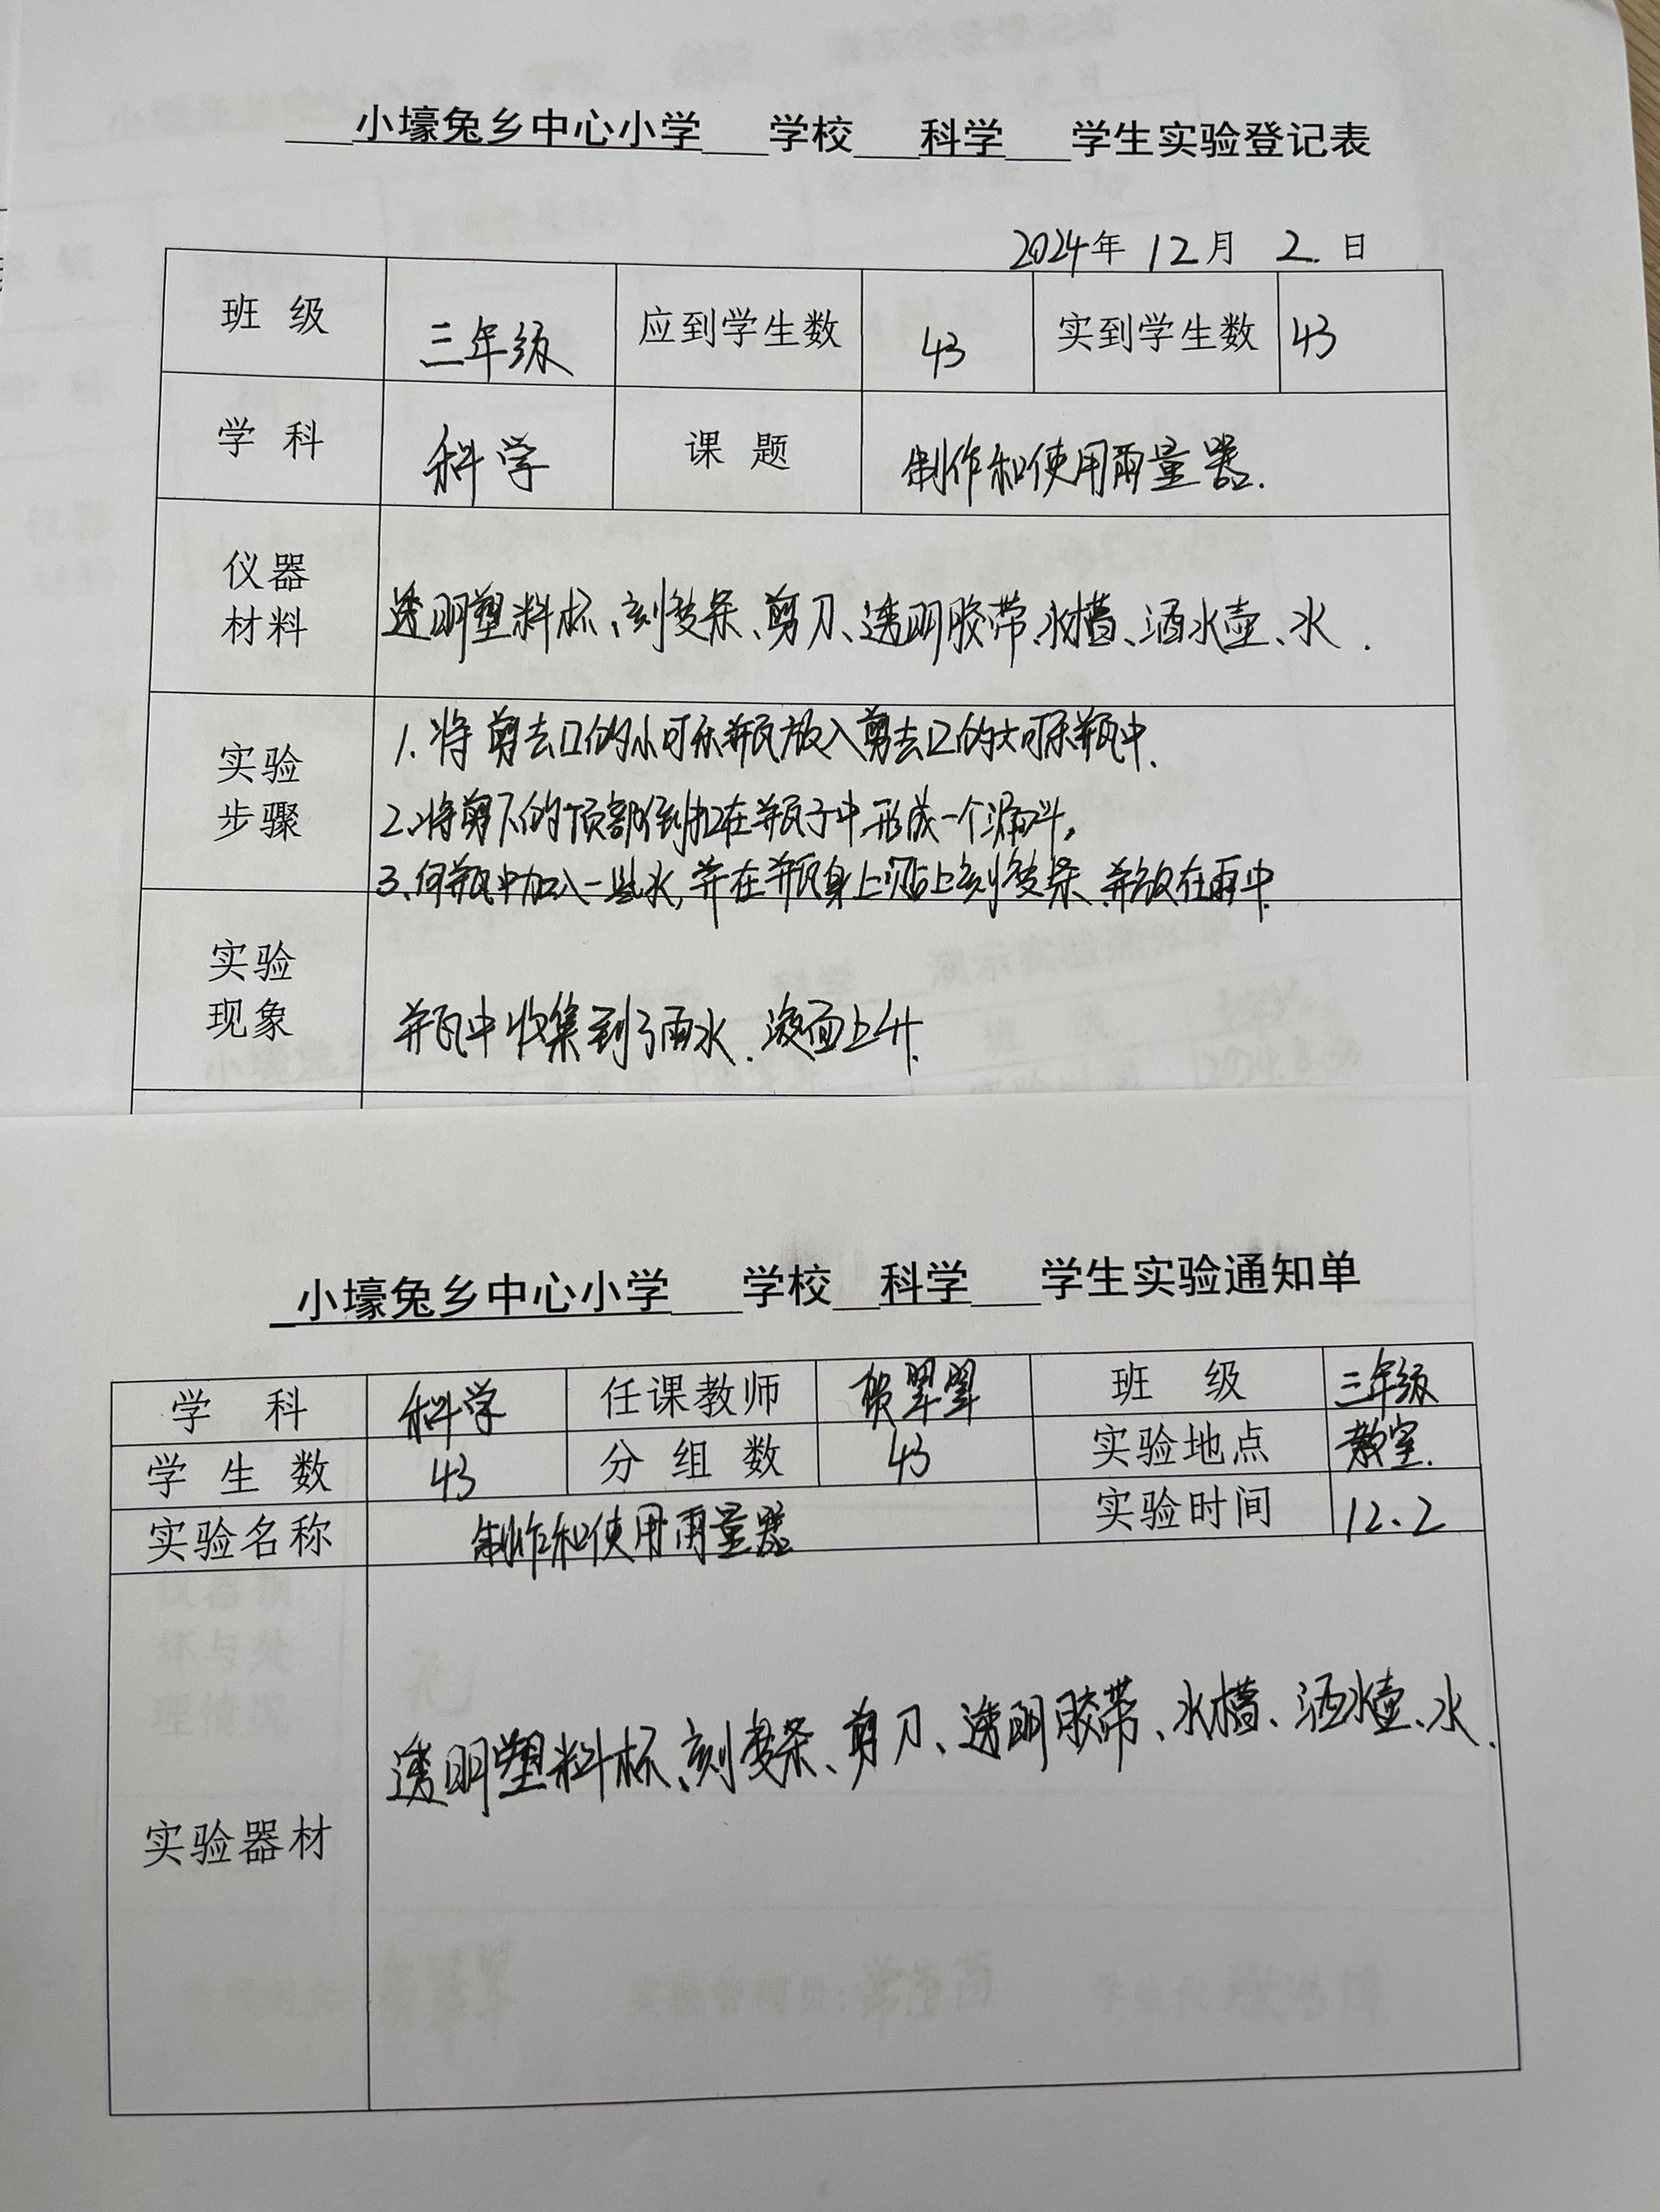 小壕兔乡中心小学 学校 科学 学生实验登记表
2024年 12月 2.日
班 级 三年级 应到学生数 43 实到学生数 43
学 科 科学 课 题 制作和使用雨量器.
仪器
材料
透明塑料杯、刻度条、剪刀、透明胶带、水槽、洒水壶、水.
实验
步骤
1.将剪去口的小可乐瓶放入剪去口的大可乐瓶中.
2.将剪下的顶部倒扣在瓶子中,形成一个漏斗.
3.向瓶中加入一些水,并在瓶身上贴上刻度条,并放在雨中.
实验
现象
瓶中收集到了雨水.液面上升.
小壕兔乡中心小学 学校 科学 学生实验通知单
学 科 科学 任课教师 班 级 三年级
学 生 数 43 分 组 数 43 实验地点 教室.
实验名称 制作和使用雨量器 实验时间 12.2
透明塑料杯、刻度条、剪刀、透明胶带、水槽、洒水壶、水.
实验器材